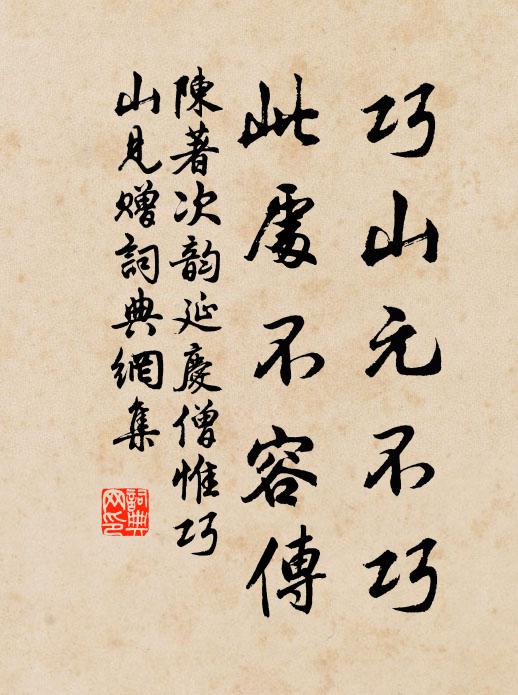 巧山元不巧
此處不容傳
陳著次韵延慶僧惟巧
山見贈詞典網集
詞典
网印